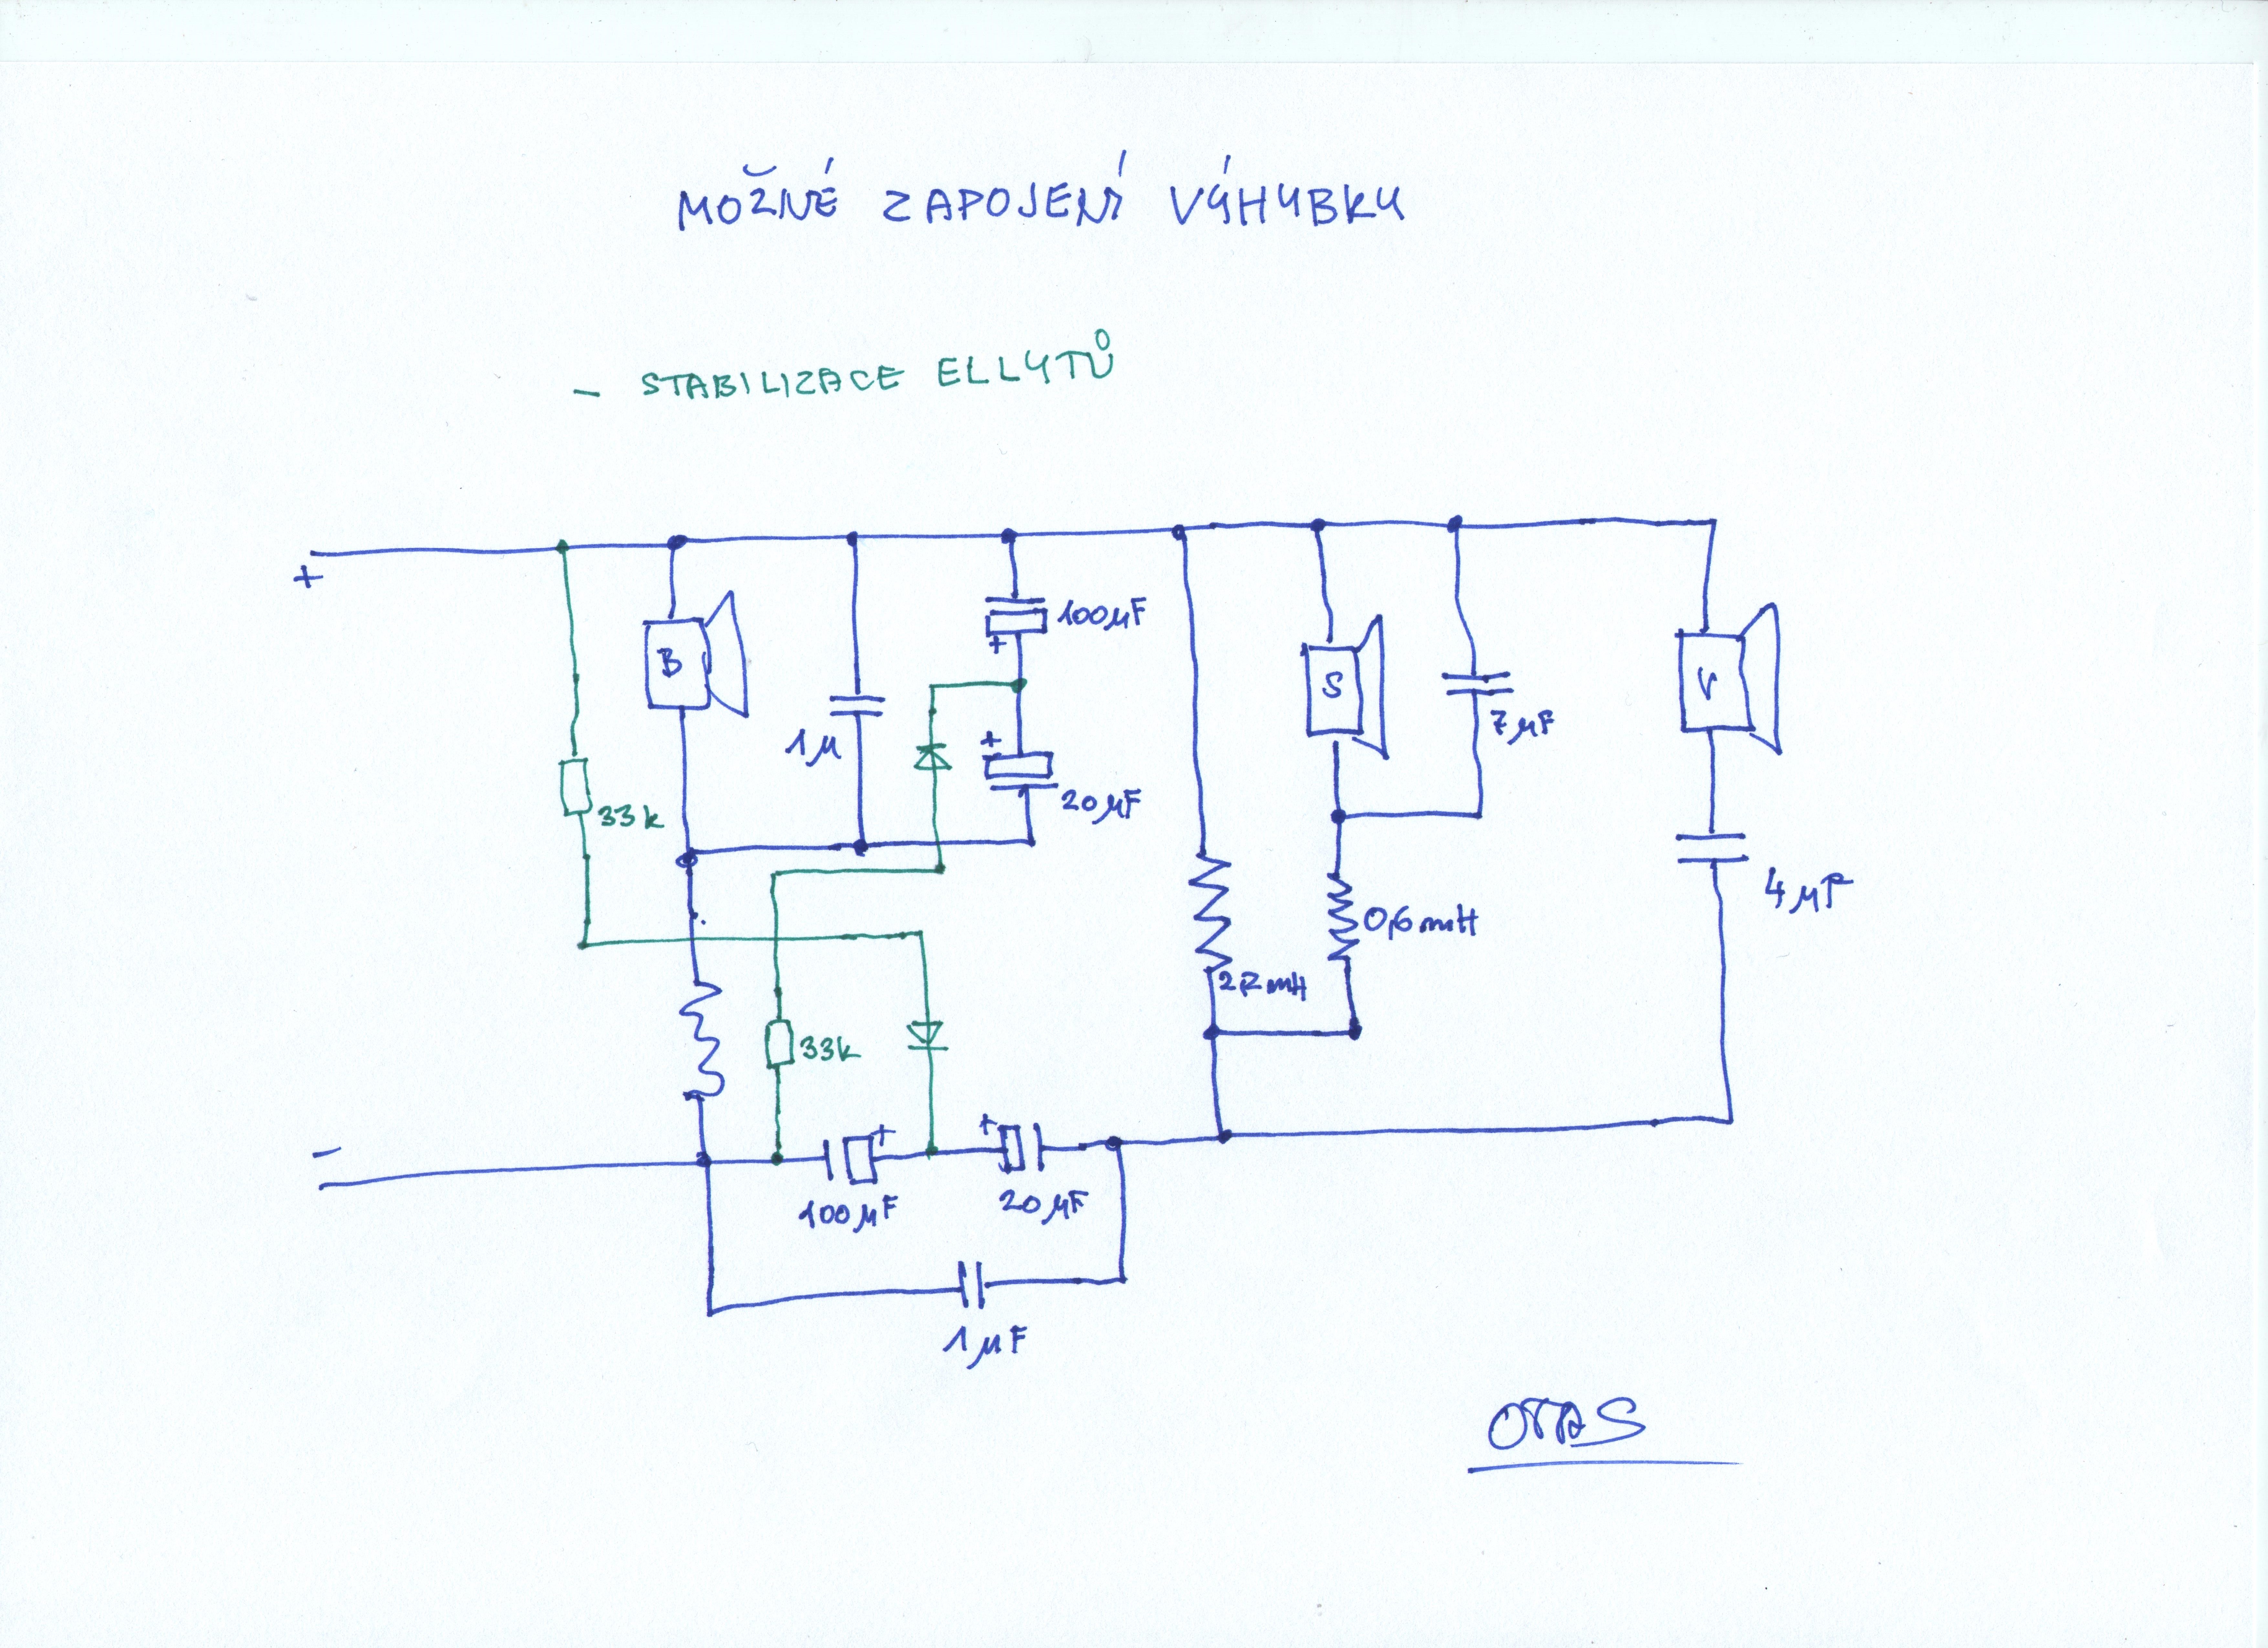 MOŽNÉ ZAPOJENÍ VÝHYBKY
- STABILIZACE ELLYTŮ
+
B
1µ
100µF
+
+
20µF
33k
S
7µF
V
4µF
0,6mH
2,2mH
33k
-
+
100µF
+
20µF
1µF
OTAS